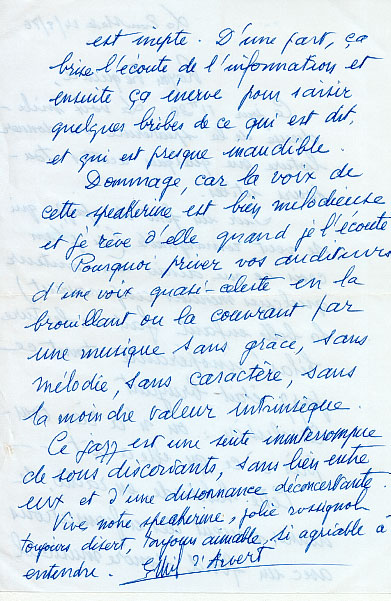 est inepte. D'une part, ça
brise l'écoute de l'information et
ensuite ça énerve pour saisir
quelques bribes de ce qui est dit,
et qui est presque inaudible.
Dommage, car la voix de
cette speakerine est bien mélodieuse
et je rêve d'elle quand je l'écoute
Pourquoi priver vos auditeurs
d'une voix quasi-céleste en la
brouillant ou la couvrant par
une musique sans grâce, sans
mélodie, sans caractère, sans
la moindre valeur intrinsèque.
Ce jazz est une suite ininterrompue
de sons discordants, sans lien entre
eux et d'une dissonance déconcertante.
Vive notre speakerine, jolie rossignol
toujours disert, toujours aimable, si agréable à
entendre. d'Arvert